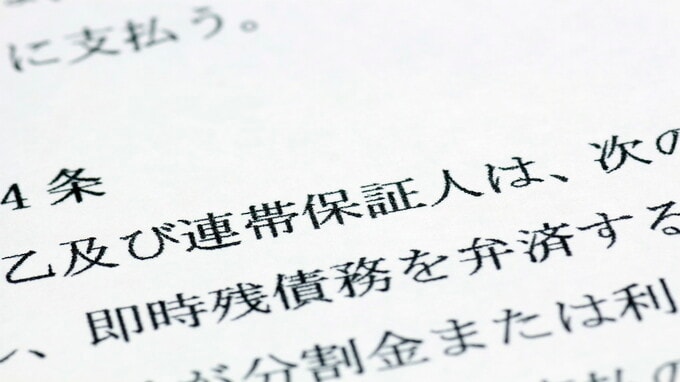 に支払う。
4条
乙及び連帯保証人は、次の
、即時残債務を弁済する
が分割金または利